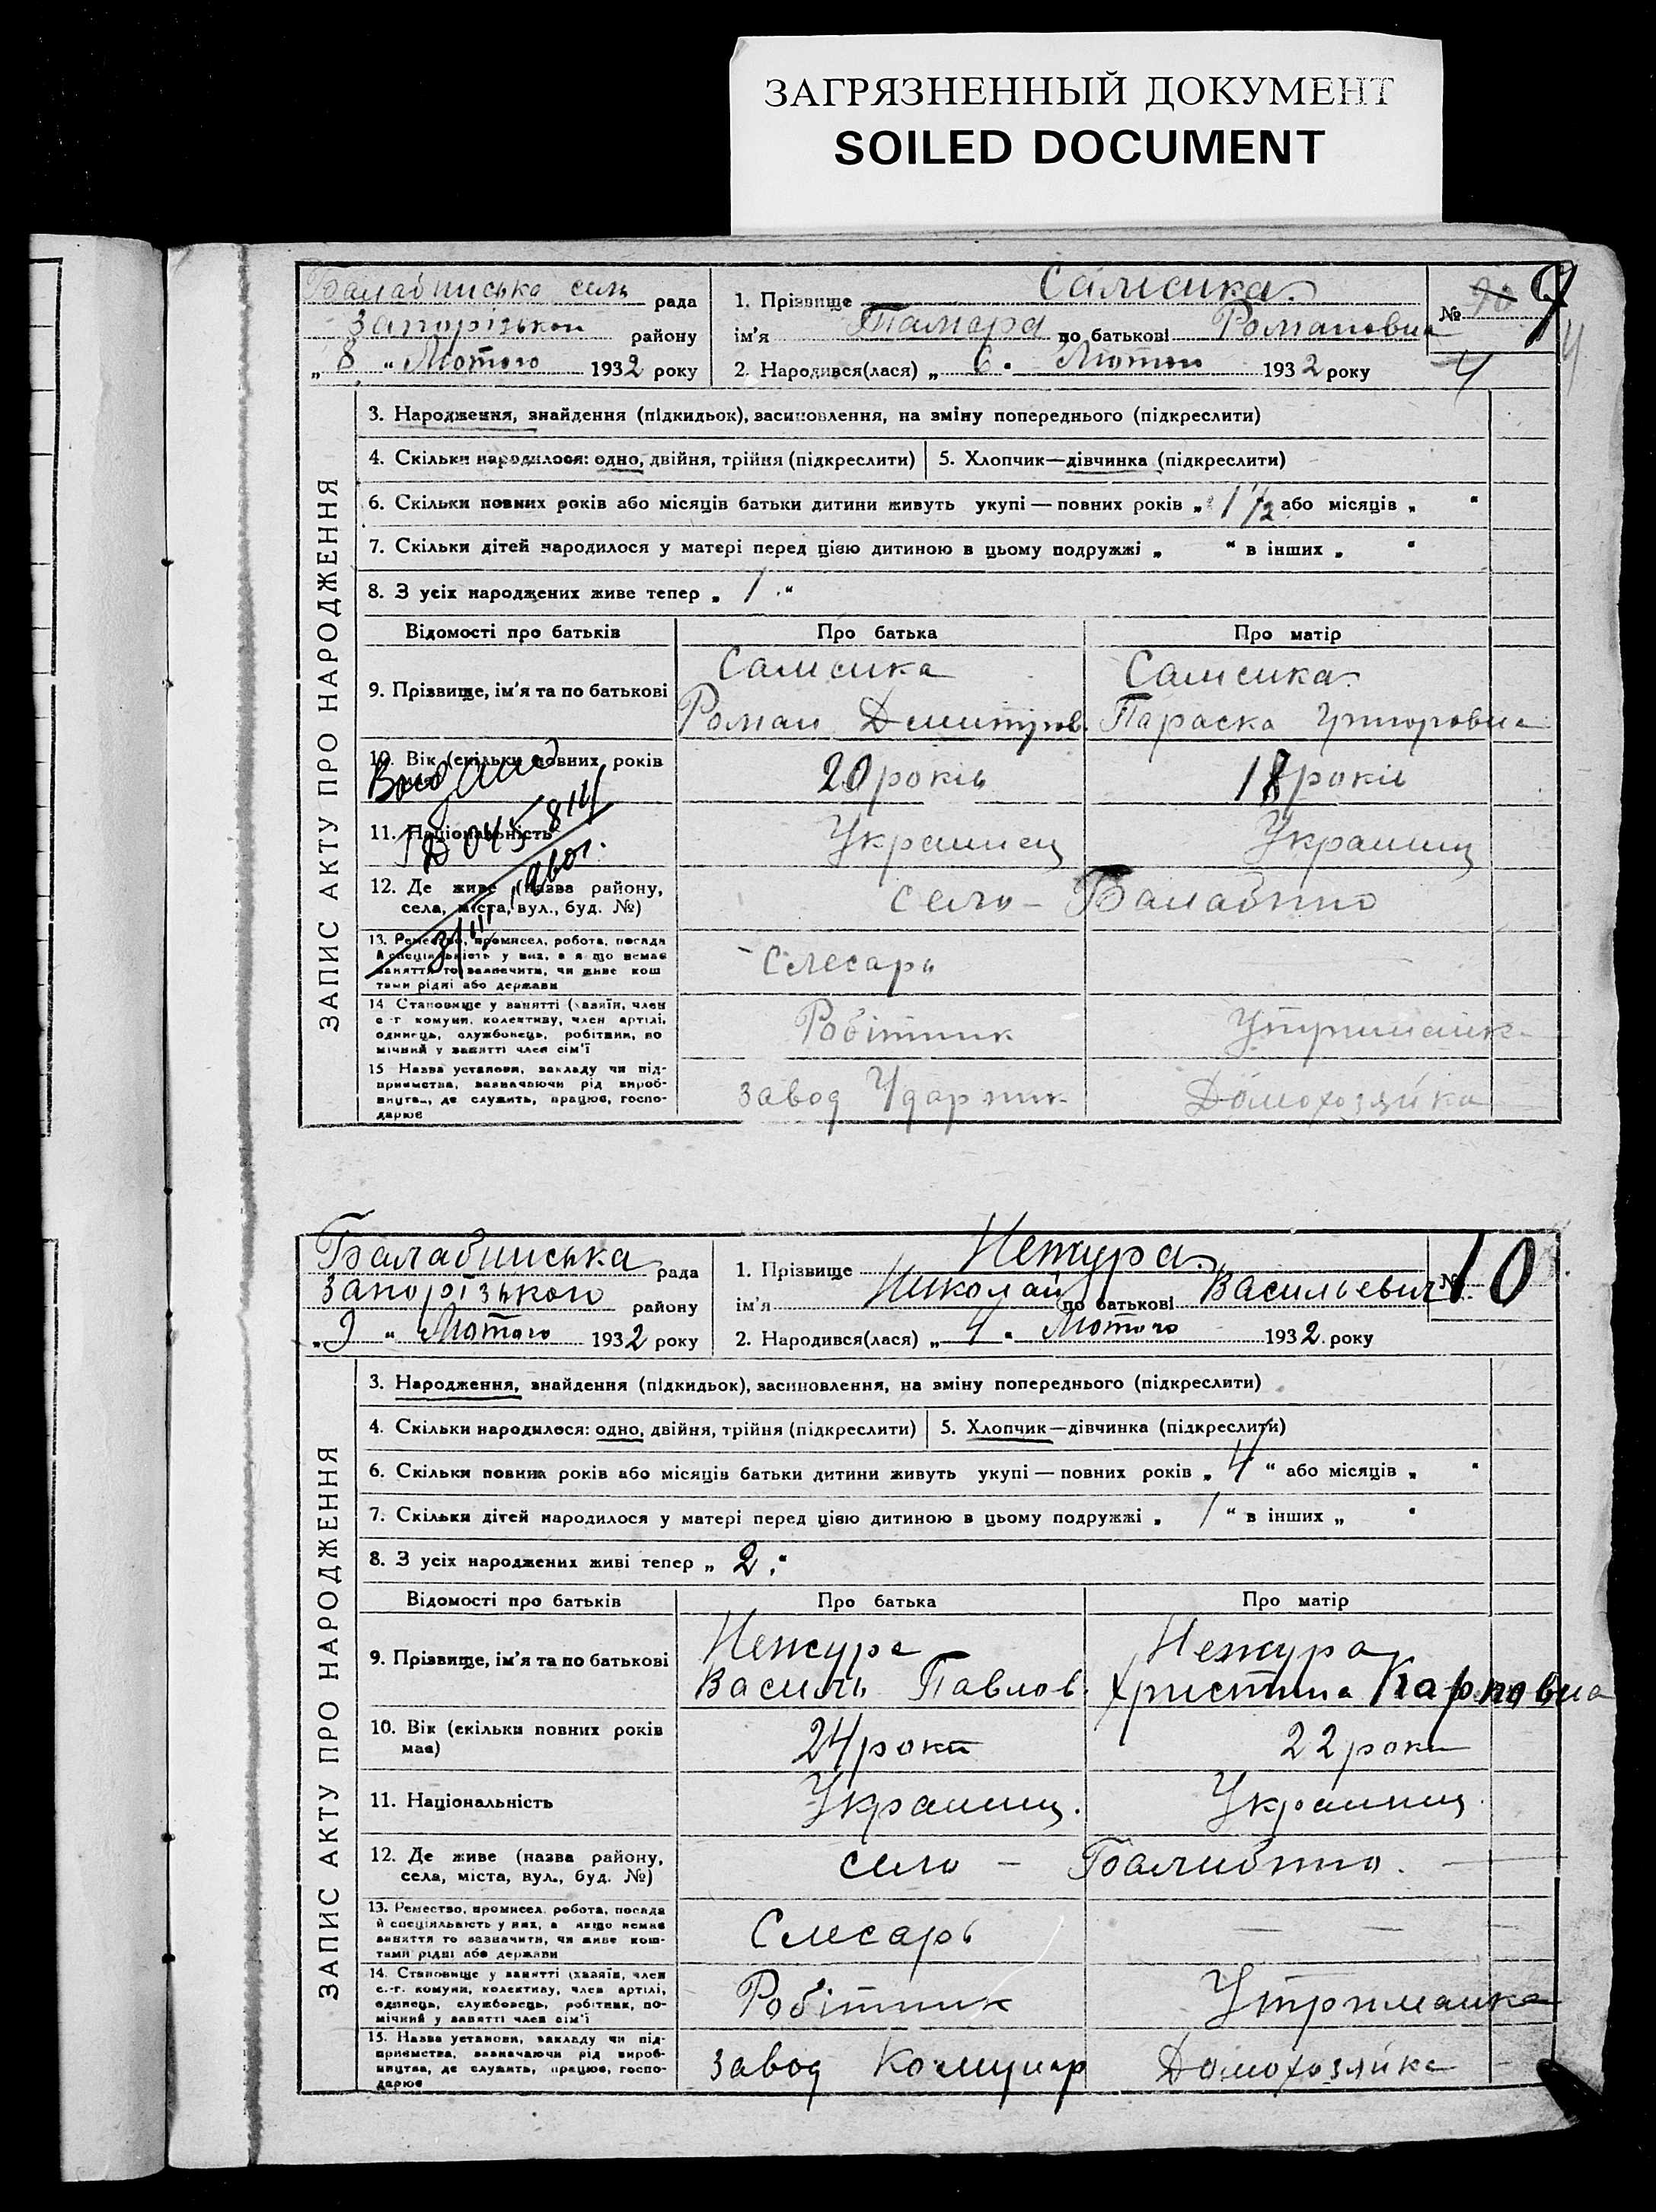 ЗАГРЯЗНЕННЫЙ ДОКУМЕНТ
SOILED DOCUMENT
ЗАПИС АКТУ ПРО НАРОДЖЕННЯ
Балабинська сель рада
Запорізького району
„ 8 “ Лютого 1932 року
1. Прізвище
ім'я Тамара по батькові Романовна
2. Народився(лася) „ 6 “ Лютого 1932 року
№ 9
4
3. Народження, знайдення (підкидьок), засиновлення, на зміну попереднього (підкреслити)
4. Скільки народилося: одно, двійня, трійня (підкреслити)
5. Хлопчик—дівчинка (підкреслити)
6. Скільки повних років або місяців батьки дитини живуть укупі — повних років „ 1 1/2 або місяців „ “
7. Скільки дітей народилося у матері перед цією дитиною в цьому подружжі „ “ в інших „ “
8. З усіх народжених живе тепер „ 1 “
Відомості про батьків
Про батька
Про матір
9. Прізвище, ім'я та по батькові
Роман Дмитров.
Параска Григоровна
10. Вік (скільки повних років
20 років
18 років
11. Національність
Украинец
Украинц
12. Де живе (назва району, села, міста, вул., буд. №)
село – Балабино
13. Ремество, промисел, робота, посада й спеціяльність у них, а якщо немає заняття то зазначити, чи живе коштами рідні або держави
Слесарь
14. Становище у занятті (хазяїн, член с.-г. комуни, колективу, член артілі, одинець, службовець, робітник, помічний у занятті член сім'ї
Робітник
Утриманка
15. Назва установи, закладу чи підприємства, зазначаючи рід виробництва, де служить, працює, господарює
завод Ударник
Домохозяйка
ЗАПИС АКТУ ПРО НАРОДЖЕННЯ
Балабинська рада
Запорізького району
„ 9 “ Лютого 1932 року
1. Прізвище Нежура
ім'я Николай по батькові Васильевич
2. Народився(лася) „ 4 “ Лютого 1932 року
№ 10
3. Народження, знайдення (підкидьок), засиновлення, на зміну попереднього (підкреслити)
4. Скільки народилося: одно, двійня, трійня (підкреслити)
5. Хлопчик—дівчинка (підкреслити)
6. Скільки повних років або місяців батьки дитини живуть укупі — повних років „ 4 “ або місяців „ “
7. Скільки дітей народилося у матері перед цією дитиною в цьому подружжі „ 1 “ в інших „ “
8. З усіх народжених живі тепер „ 2 “
Відомості про батьків
Про батька
Про матір
9. Прізвище, ім'я та по батькові
Нежура
Василь Павлов.
Нежура
Христина Карповна
10. Вік (скільки повних років має)
24 роки
22 роки
11. Національність
Украинц.
Украинц.
12. Де живе (назва району, села, міста, вул., буд. №)
село – Балабино.
13. Ремество, промисел, робота, посада й спеціяльність у них, а якщо немає заняття то зазначити, чи живе коштами рідні або держави
Слесарь
14. Становище у занятті (хазяїн, член с.-г. комуни, колективу, член артілі, одинець, службовець, робітник, помічний у занятті член сім'ї
Робітник
Утриманка
15. Назва установи, закладу чи підприємства, зазначаючи рід виробництва, де служить, працює, господарює
завод Комунар
Домохозяйка